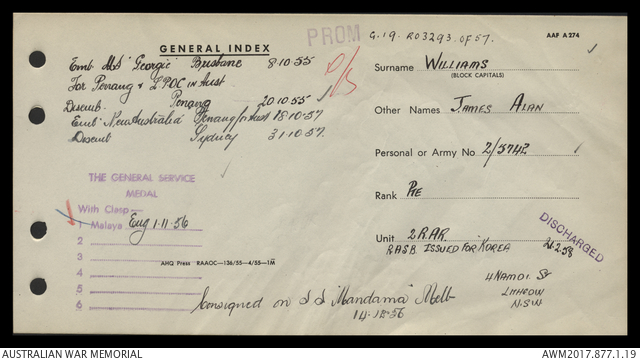 PROM G.19. R03293. OF 57. AAF A 274
GENERAL INDEX
Emb MS "Georgic" Brisbane 8.10.55
For Penang & LPOC in Aust
Disemb. Penang 20.10.55
Emb. New Australia Penang for Aust 18.10.57
Disemb Sydney 31.10.57.
P/S
Surname WILLIAMS
(BLOCK CAPITALS)
Other Names JAMES ALAN
Personal or Army No. 2/3742
Rank PTE
Unit 2 R.A.R.
R.A.S.B. ISSUED FOR KOREA
DISCHARGED
21.2.58
THE GENERAL SERVICE
MEDAL
With Clasp—
1 Malaya Eng 1.11.56
2
3
4
5
6
AHQ Press RAAOC—136/55—4/55—1M
4 NAMOI St
LITHGOW
N.S.W
Consigned on S S "Mandama" Melb
14.12.56
AUSTRALIAN WAR MEMORIAL AWM2017.877.1.19